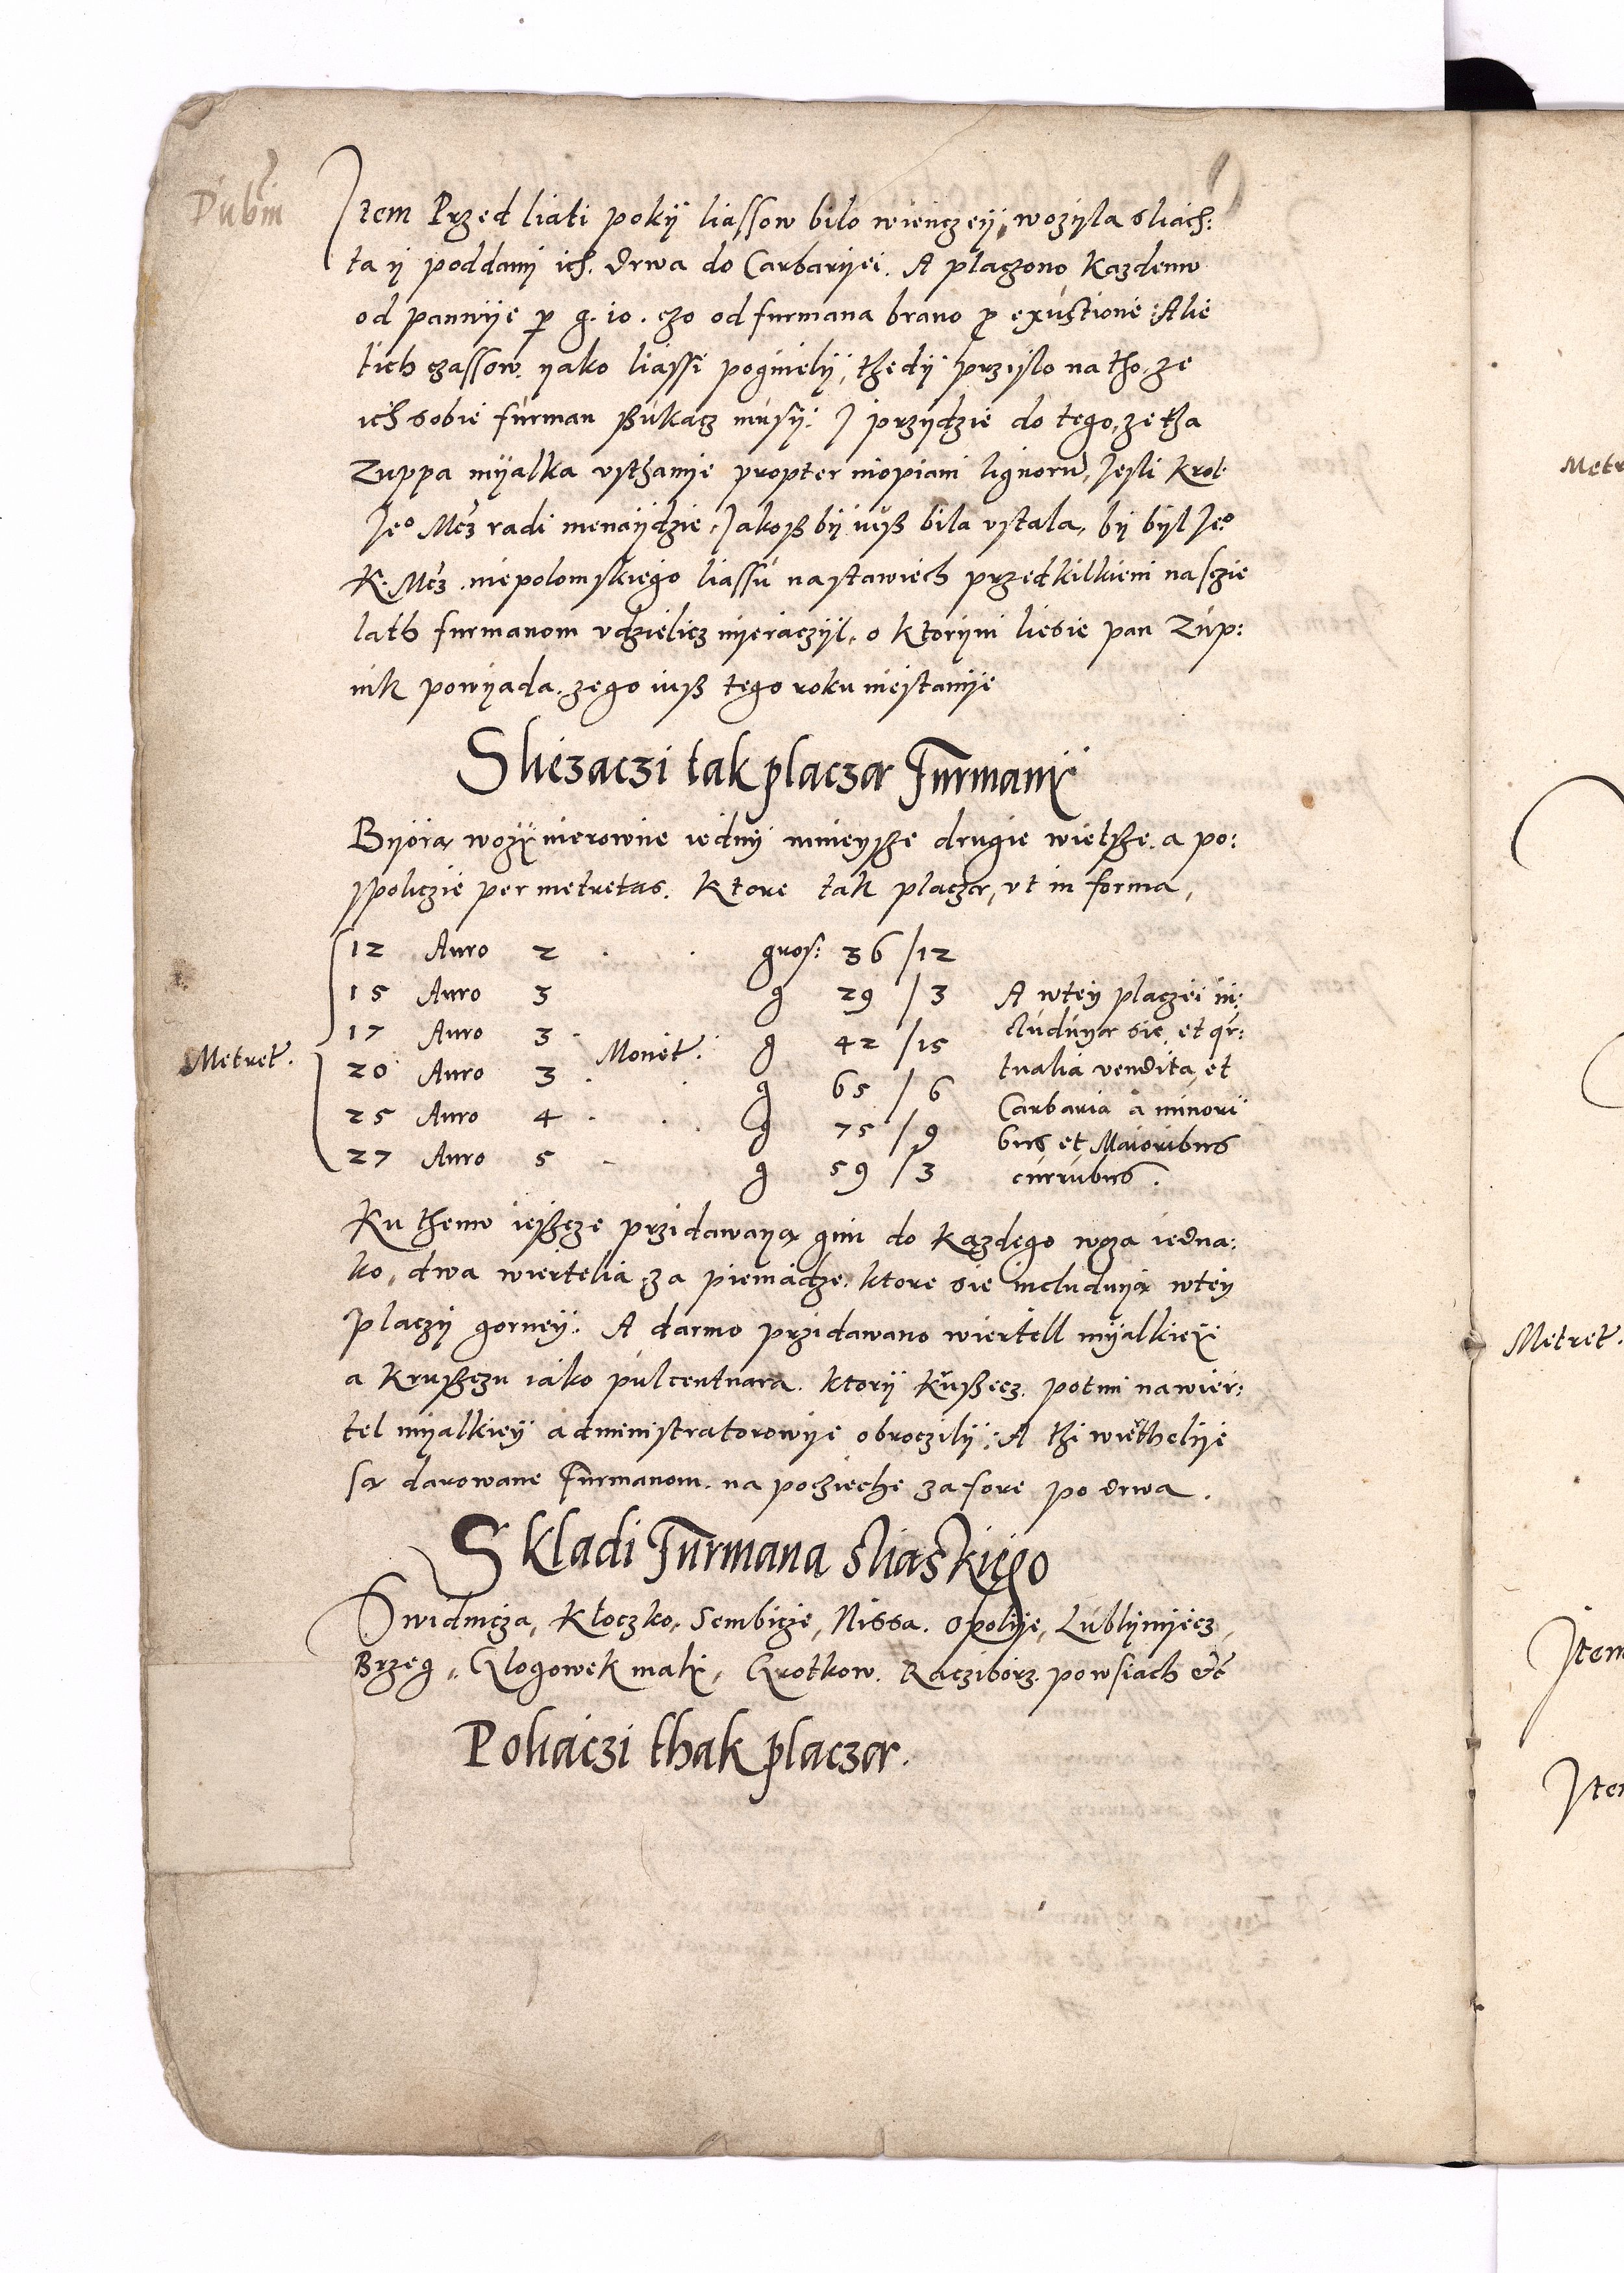 Dubiū
Item Przed liati pokÿ liassow bilo wienczeÿ, wozÿla sliach:
ta ÿ poddanÿ ich. drwa do Carbarÿei. A placzono Kazdemv
od panwÿe p g. 10. czo od furmana brano p exustione: Alie
tich czassow. ÿako liassi poginelÿ, thedÿ przislo na tho, ze
ich sobie furman szukacz musÿ: J przÿdzie do tego, ze tha
Zuppa mÿalka vsthanÿe propter inopiam lignorū, Jesli Krol:
Je° Mcz radi nienaÿdzie, Jakosz bÿ iusz bila vstala, by bÿl Je°
K. Mcz. niepolomskiego liassu na stawiech przed kilkiem nascie
lath furmanom vdzielicz nÿeraczÿl, o ktorÿm liesie pan Zup:
nik powÿada. ze go iusz tego roku niestanÿe
Sliezaczi tak placza Furmanÿ
Bÿora wozÿ nierowne iednÿ mnieÿsze drugie wietsze. a po:
spoliczie per metretas. Ktore tak placza, vt in forma,
Metret.
12 Auro 2 . . gros: 36 /12
15 Auro 3 g 29 / 3
17 Auro 3 . Monet. g 42 /15
20 Auro 3 . . g 65 / 6
25 Auro 4 . . g 75 / 9
27 Auro 5 . g 59 / 3
A wteÿ placzei in:
cluduÿa sie, et qr:
tualia vendita, et
Carbaria a minori
bus et Maioribus
curribus.
Ku themv ieszcze przidawaÿa gim do Kazdego woza iedna:
ko, dwa wiertelia za pieniadze. ktore sie includuÿa wteÿ
placzÿ gorneÿ. A darmo przidawano wiertell mÿalkieÿ
a Kruszczu iako pulcentnara. ktorÿ Kruszecz. potim na wier:
tel mÿalkieÿ administratorowÿe obroczilÿ: A thi wiethelÿe
sa darowane Furmanom. na poczieche za fore po drwa.
Skladi Furmana sliaskiego
Swidnicza, Kloczko, Sembicze, Nissa. Opolÿe, Lublÿnÿecz,
Brzeg, Glogowek malÿ, Grotkow. Racziborz. po wsiach etc
Poliaczi thak placza.
Metret.
Item